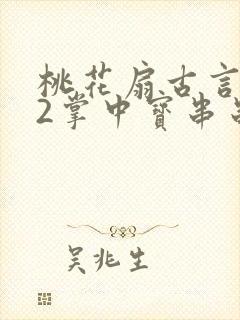 桃花扇古言
2掌中寳串
吴兆生